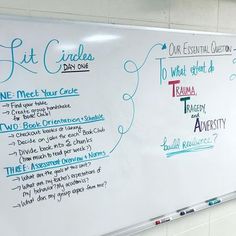 Lit Circles
DAY ONE
ONE: Meet Your Circle
→ Find your table
→ Create group handshake
for Book Club!
TWO: Book Orientation + Schedule
→ Checkout books @ library
→ Decide on jobs for each Book Club
→ Divide book into 2 chunks
(how much to read per week?)
THREE: Assessment Overview + Norms
→ What are the goals of this unit?
→ What are my teacher's expectations
of my behavior? My academics?
→ What does my group expect from me?
OUR ESSENTIAL QUESTION
To what extent do
TRAUMA,
TRAGEDY,
and
ADVERSITY
build resilience?